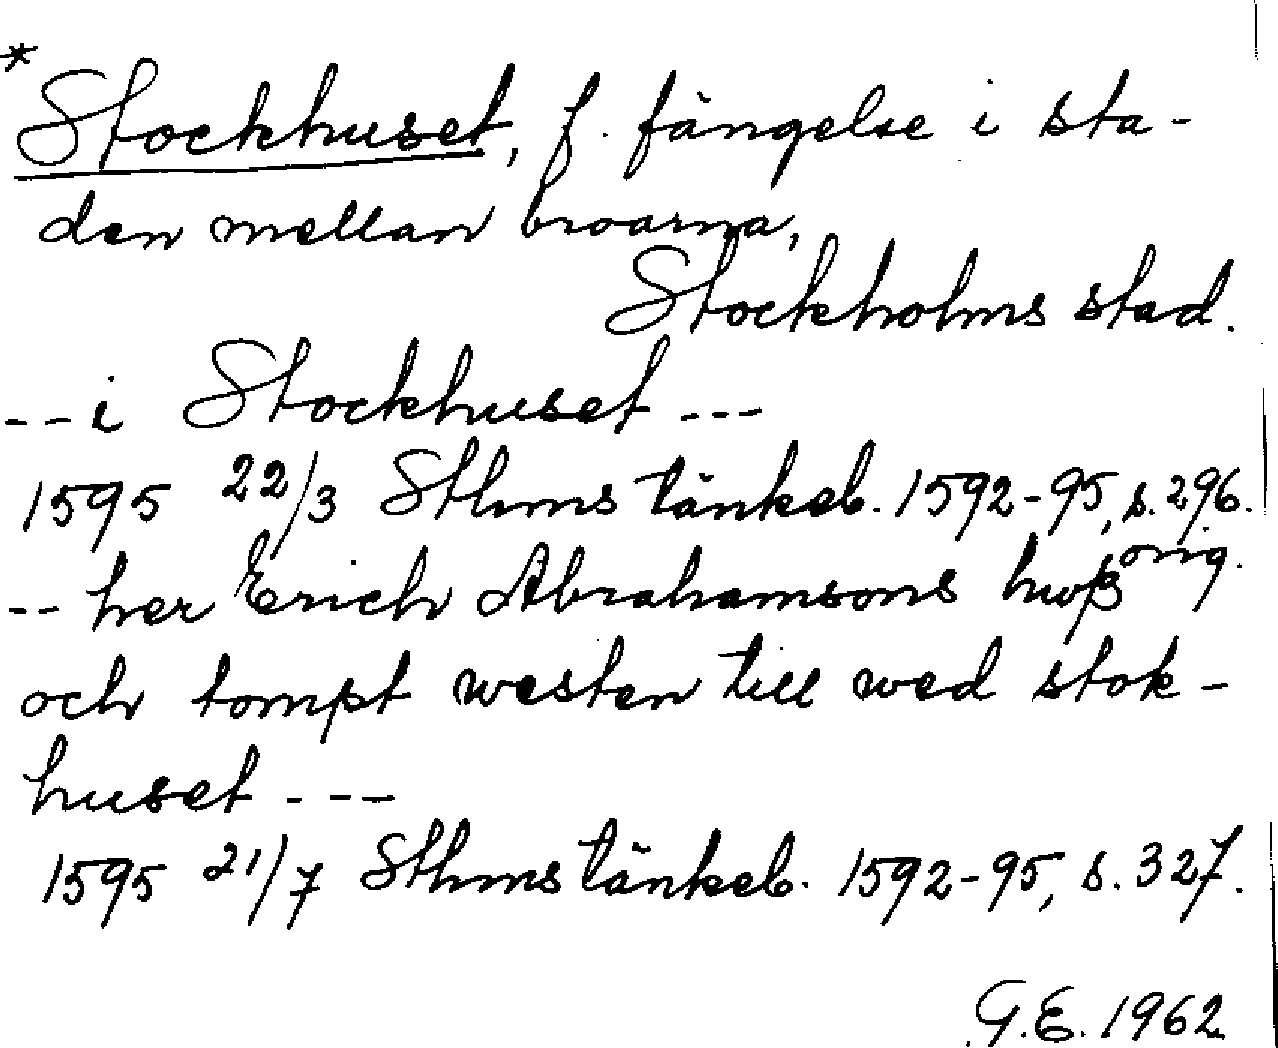 * Stockhuset, f. fängelse i sta-
den mellan broarna,
Stockholms stad.
-- i Stockhuset ---
1595 22/3 Sthms tänkeb. 1592-95, s. 296.
orig.
-- her Erich Abrahamsons hwß
och tompt westen till wed stok-
huset ---
1595 21/7 Sthms tänkeb. 1592-95, s. 327.
G.E. 1962